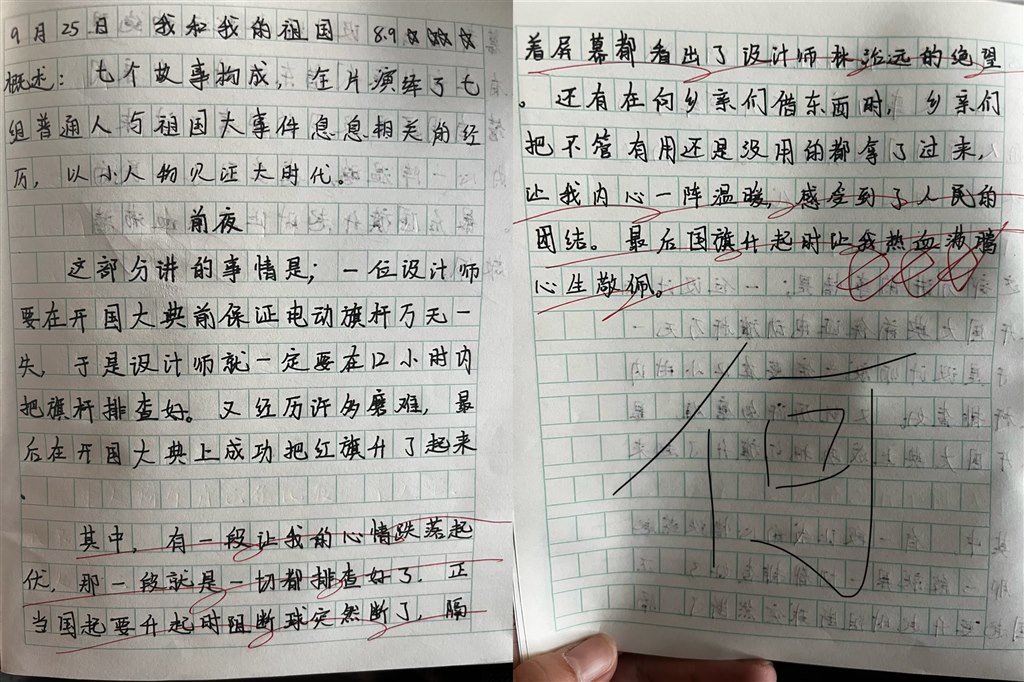 9月25日 我和我的祖国 8.9☆☆☆☆
概述：七个故事构成，全片演绎了七
组普通人与祖国大事件息息相关的经
历，以小人物见证大时代。
前夜
这部分讲的事情是；一位设计师
要在开国大典前保证电动旗杆万无一
失，于是设计师就一定要在12小时内
把旗杆排查好。又经历许多磨难，最
后在开国大典上成功把红旗升了起来
。
其中，有一段让我的心情跌落起
伏，那一段就是一切都排查好了，正
当国起要升起时阻断球突然断了，隔
着屏幕都看出了设计师林治远的绝望
。还有在向乡亲们借东西时，乡亲们
把不管有用还是没用的都拿了过来，
让我内心一阵温暖，感受到了人民的
团结。最后国旗升起时让我热血沸腾
心生敬佩。
何